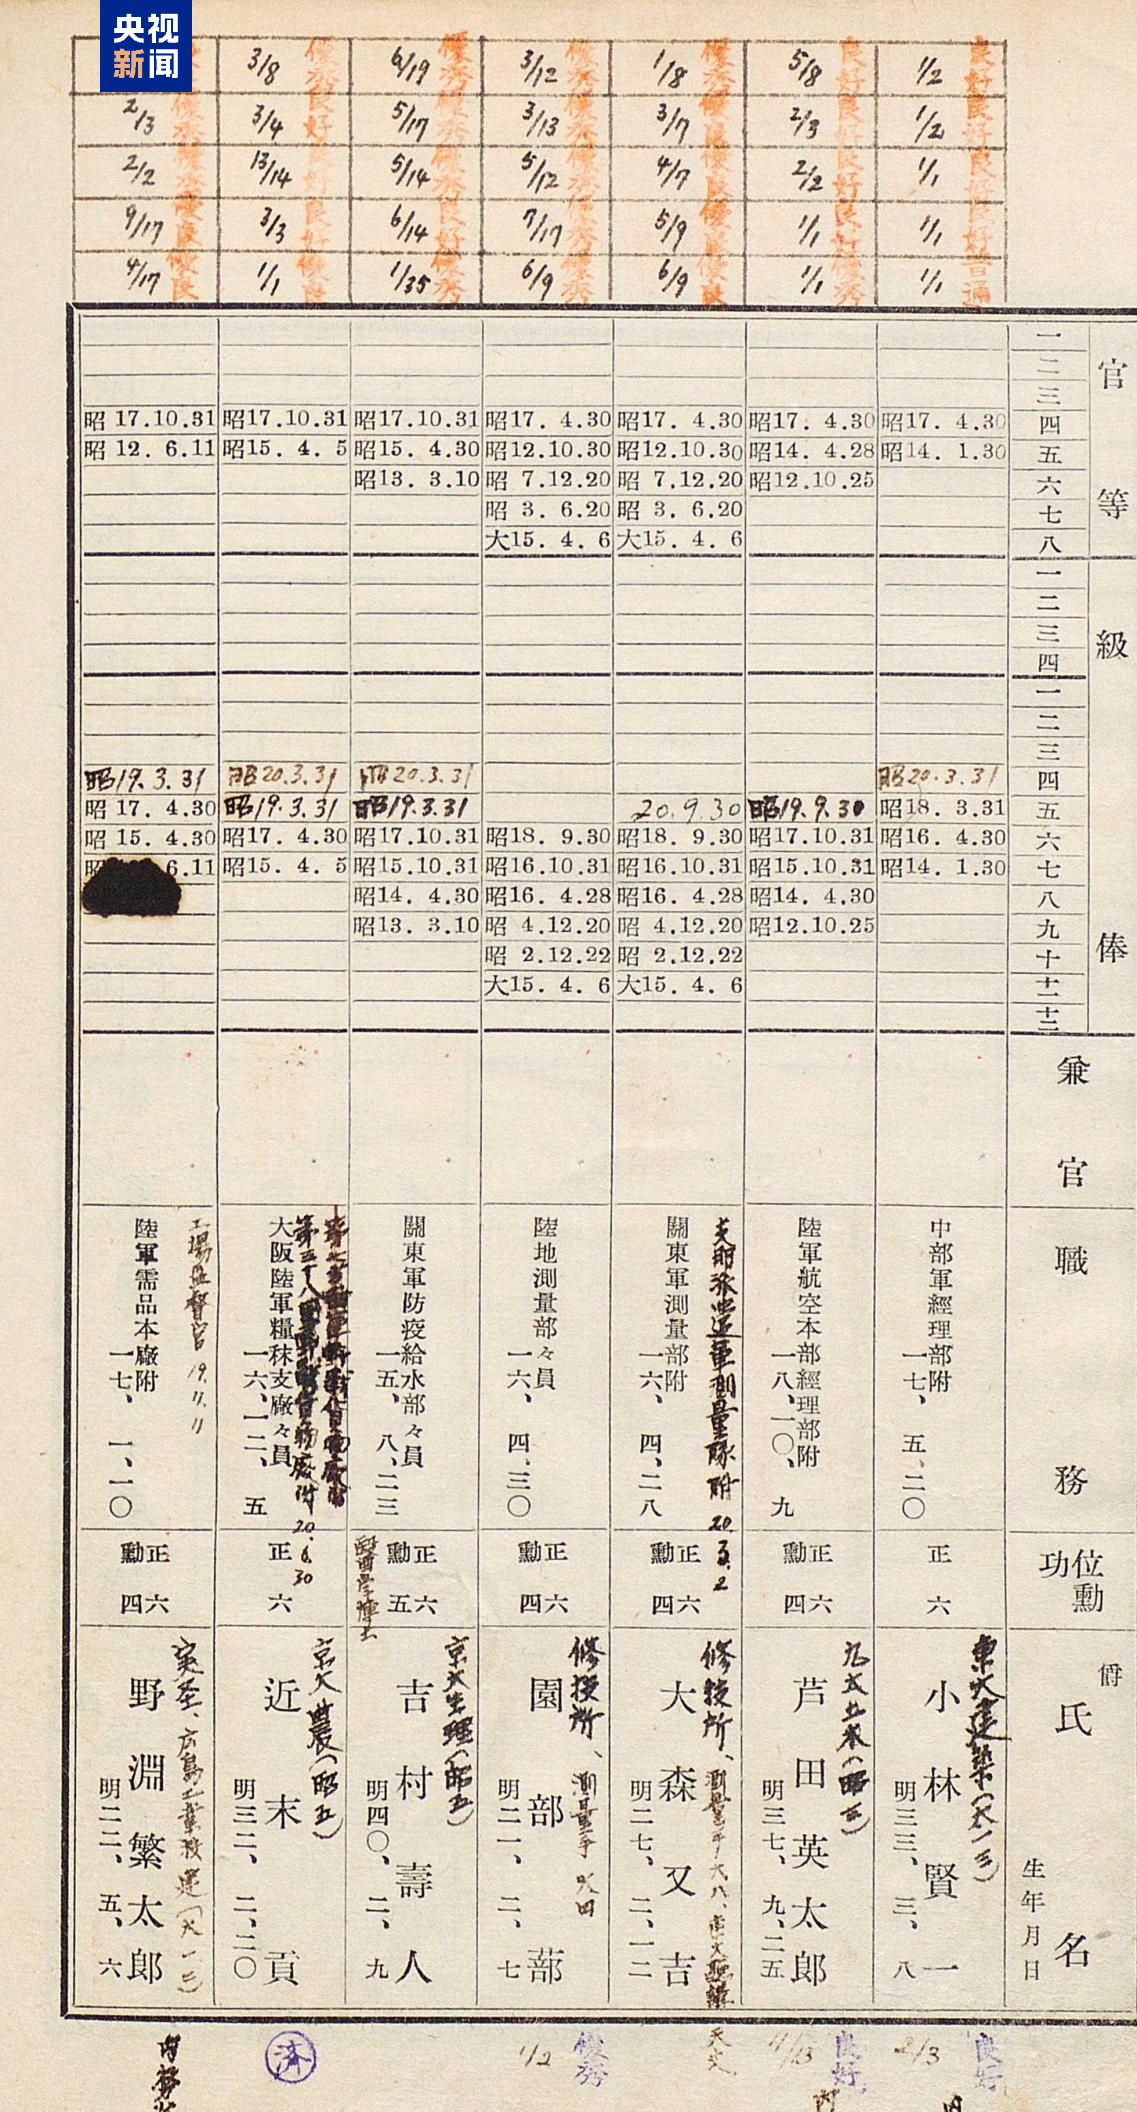 央视
新闻
良好 1/2
良好 1/2
良好 1/1
良好 1/1
普通 1/1
良好 5/8
良好 2/3
良好 2/2
良好 1/1
優秀 1/1
優秀 1/8
優良 3/7
優良 4/7
優良 5/9
優良 6/9
優秀 3/12
優秀 3/13
優秀 5/12
優秀 7/17
優秀 6/9
優秀 6/19
優秀 5/17
優秀 5/14
良好 6/14
優秀 1/35
優秀 3/8
良好 3/4
良好 13/14
良好 3/3
優良 1/1
優秀 2/3
優秀 2/2
優良 9/17
優良 4/17
官等
一
二
三
四
五
六
七
八
級俸
一
二
三
四
一
二
三
四
五
六
七
八
九
十
十一
十二
兼官
職務
位勳功
爵
氏名
生年月日
昭17. 4.30
昭14. 1.30
昭20.3.31
昭18. 3.31
昭16. 4.30
昭14. 1.30
中部軍經理部附
一七、五、二〇
正六
東大建築(大一三)
小林賢一
明三三、三、八
昭17. 4.30
昭14. 4.28
昭12.10.25
昭19.9.30
昭17.10.31
昭15.10.31
昭14. 4.30
昭12.10.25
陸軍航空本部經理部附
一八、一〇、九
正六
勳四
九大土木(昭三)
芦田英太郎
明三七、九、二五
昭17. 4.30
昭12.10.30
昭 7.12.20
昭 3. 6.20
大15. 4. 6
20.9.30
昭18. 9.30
昭16.10.31
昭16. 4.28
昭 4.12.20
昭 2.12.22
大15. 4. 6
支那派遣軍測量隊附 20.3.2
關東軍測量部附
一六、四、二八
正六
勳四
修技所、
大森又吉
明二七、二、一二
昭17. 4.30
昭12.10.30
昭 7.12.20
昭 3. 6.20
大15. 4. 6
昭18. 9.30
昭16.10.31
昭16. 4.28
昭 4.12.20
昭 2.12.22
大15. 4. 6
陸地測量部々員
一六、四、三〇
正六
勳四
修技所、測量手
園部蔀
明二一、二、七
昭17.10.31
昭15. 4.30
昭13. 3.10
昭20.3.31
昭19.3.31
昭17.10.31
昭15.10.31
昭14. 4.30
昭13. 3.10
關東軍防疫給水部々員
一五、八、二三
正六
勳五
醫學博士
京大生理(昭五)
吉村壽人
明四〇、二、九
昭17.10.31
昭15. 4. 5
昭20.3.31
昭19.3.31
昭17. 4.30
昭15. 4. 5
大阪陸軍糧秣支廠々員
一六、一二、五
20.6.30
正六
京大農(昭五)
近末貢
明三二、二、二〇
昭 17.10.31
昭 12. 6.11
昭19.3.31
昭 17. 4.30
昭 15. 4.30
昭 6.11
工場監督官 19.11.11
陸軍需品本廠附
一七、一、一〇
正六
勳四
野淵繁太郎
明二二、五、六
良好 2/3
良好 4/13
天文
優秀 1/2
済